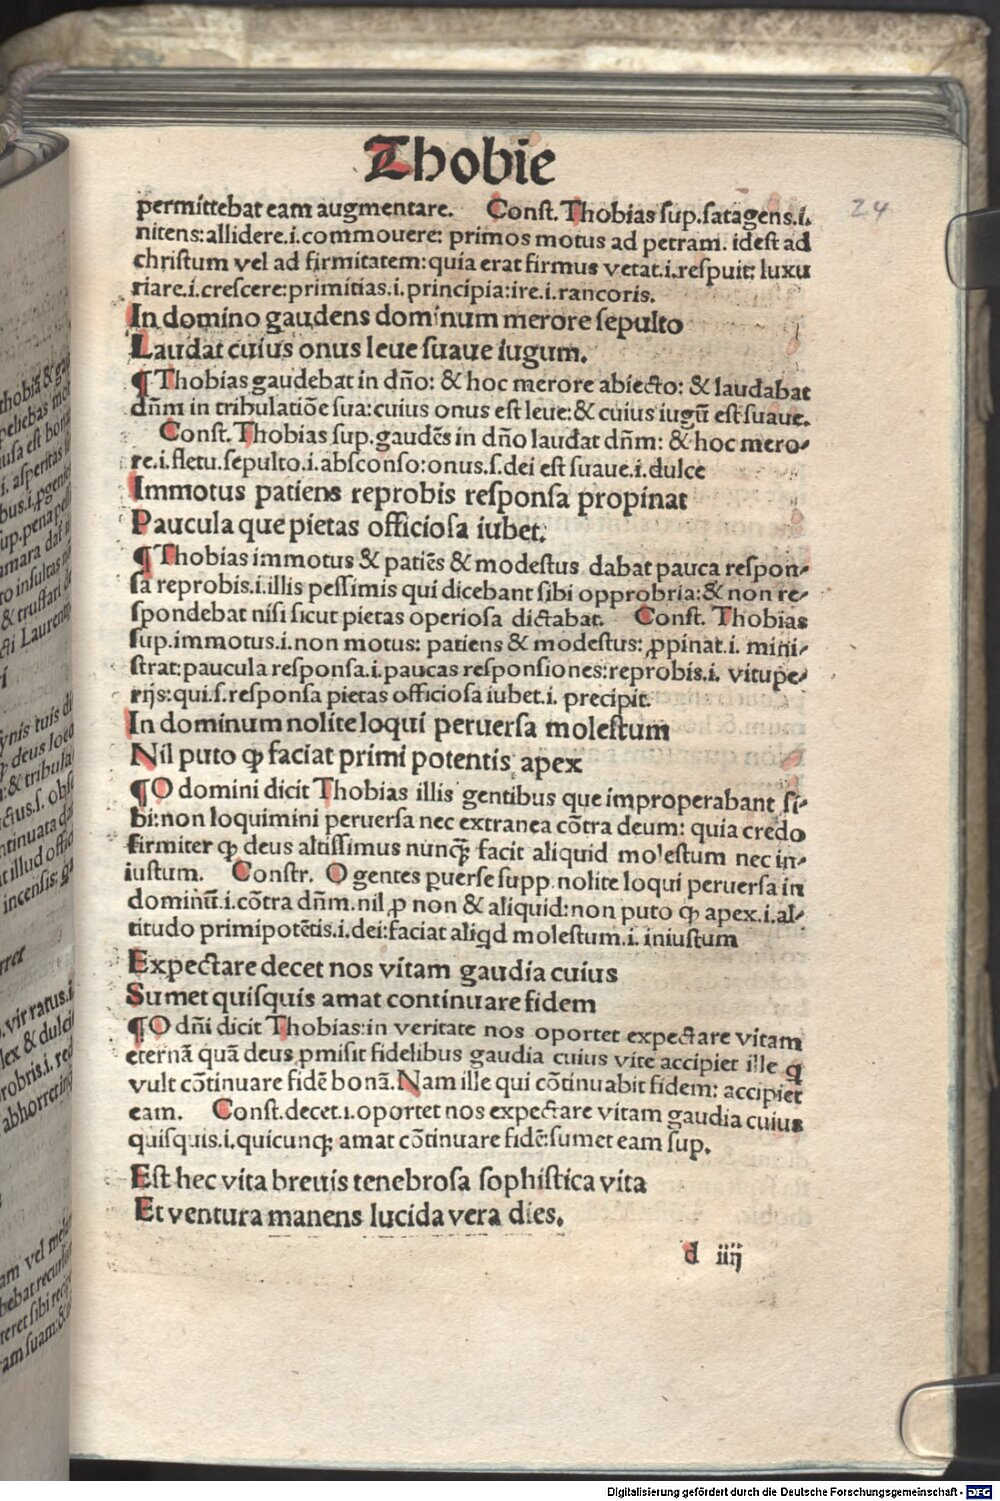 Thobie
24
permittebat eam augmentare. Conſt. Thobias ſup. ſatagens.i.
nitens:allidere.i.commouere: primos motus ad petram. ideſt ad
chriſtum vel ad firmitatem:quia erat firmus vetat.i.reſpuit: luxu
riare.i.creſcere:primitias.i.principia:ire.i.rancoris.
In domino gaudens dominum merore ſepulto
Laudat cuius onus leue ſuaue iugum.
¶ Thobias gaudebat in dño: & hoc merore abiecto: & laudabat
dñm in tribulatiõe ſua:cuius onus eſt leue:& cuius iugũ eſt ſuaue.
Conſt. Thobias ſup.gaudẽs in dño laudat dñm: & hoc mero⸗
re.i.fletu.ſepulto.i.abſconſo:onus.ſ.dei eſt ſuaue.i.dulce
Immotus patiens reprobis reſponſa propinat
Paucula que pietas officioſa iubet.
¶ Thobias immotus & patiẽs & modeſtus dabat pauca reſpon⸗
ſa reprobis.i.illis peſſimis qui dicebant ſibi opprobria:& non re⸗
ſpondebat niſi ſicut pietas operioſa dictabat. Conſt. Thobias
ſup.immotus.i.non motus: patiens & modeſtus: ꝓpinat.i. mini⸗
ſtrat:paucula reſponſa.i.paucas reſponſiones:reprobis.i. vitupe⸗
rijs:qui.ſ.reſponſa pietas officioſa iubet.i. precipit.
In dominum nolite loqui peruerſa moleſtum
Nil puto ꝙ faciat primi potentis apex
¶ O domini dicit Thobias illis gentibus que improperabant ſi⸗
bi:non loquimini peruerſa nec extranea cõtra deum: quia credo
firmiter ꝙ deus altiſſimus nunꝗꝫ facit aliquid moleſtum nec in⸗
iuſtum. Conſtr. O gentes ꝑuerſe ſupp nolite loqui peruerſa in
dominũ.i.cõtra dñm.nil ꝓ non & aliquid:non puto ꝙ apex.i.al⸗
titudo primipotẽtis.i.dei:faciat aliqd moleſtum.i. iniuſtum
Expectare decet nos vitam gaudia cuius
Sumet quiſquis amat continuare fidem
¶ O dñi dicit Thobias:in veritate nos oportet expectare vitam
eternã quã deus ꝓmiſit fidelibus gaudia cuius vite accipiet ille ꝗ
vult cõtinuare fidẽ bonã. Nam ille qui cõtinuabit fidem: accipiet
eam. Conſt.decet.i.oportet nos expectare vitam gaudia cuius
quiſquis.i.quicunqꝫ amat cõtinuare fidẽ:ſumet eam ſup.
Eſt hec vita breuis tenebroſa ſophiſtica vita
Et ventura manens lucida vera dies.
d iiij
Digitalisierung gefördert durch die Deutsche Forschungsgemeinschaft - DFG